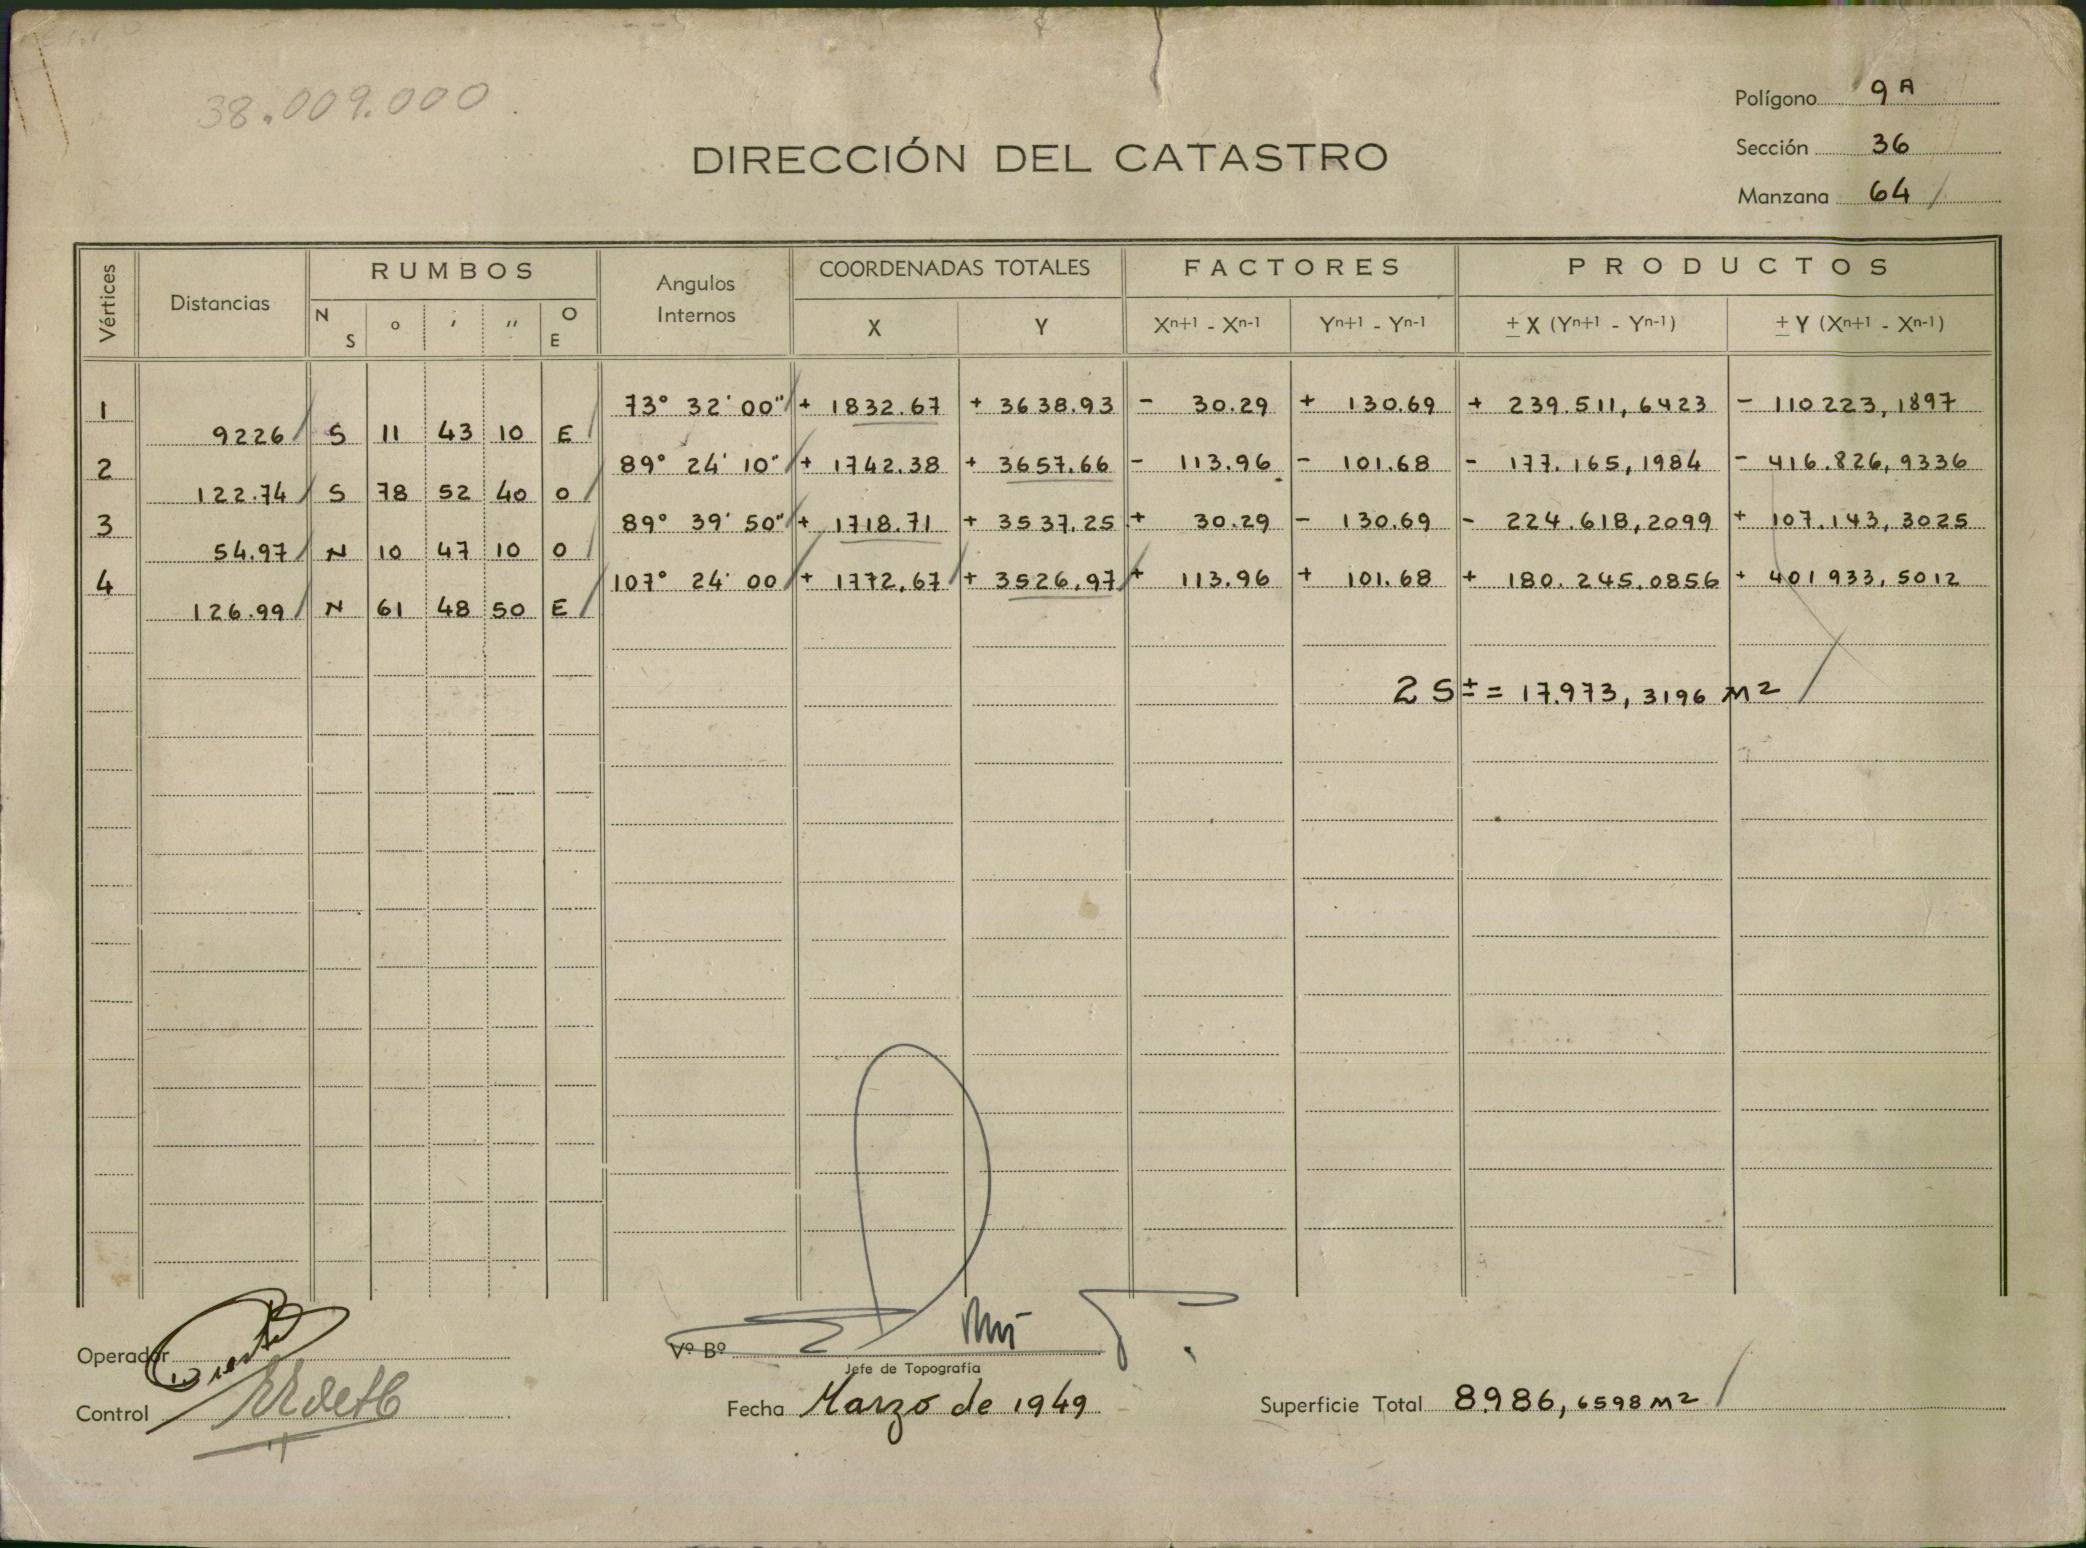 38.009.000
Polígono 9 A
DIRECCIÓN DEL CATASTRO
Sección 36
Manzana 64
Vértices Distancias RUMBOS Angulos Internos COORDENADAS TOTALES FACTORES PRODUCTOS
N S ° ' '' O E X Y Xn+1 - Xn-1 Yn+1 - Yn-1 ± X (Yn+1 - Yn-1) ± Y (Xn+1 - Xn-1)
1 73° 32' 00" + 1832.67 + 3638.93 - 30.29 + 130.69 + 239.511,6423 - 110223,1897
9226 S 11 43 10 E
2 89° 24' 10" + 1742.38 + 3657.66 - 113.96 - 101.68 - 177.165,1984 - 416.826,9336
122.74 S 78 52 40 O
3 89° 39' 50" + 1718.71 + 3537.25 + 30.29 - 130.69 - 224.618,2099 + 107.143,3025
54.97 N 10 47 10 O
4 107° 24' 00 + 1772,67 + 3526,97 + 113.96 + 101.68 + 180.245.0856 + 401933,5012
126.99 N 61 48 50 E
2 S ± = 17.973,3196 M2
Operador
Vº Bº
Jefe de Topografía
Control
Fecha Marzo de 1949
Superficie Total 8.986,6598 M2